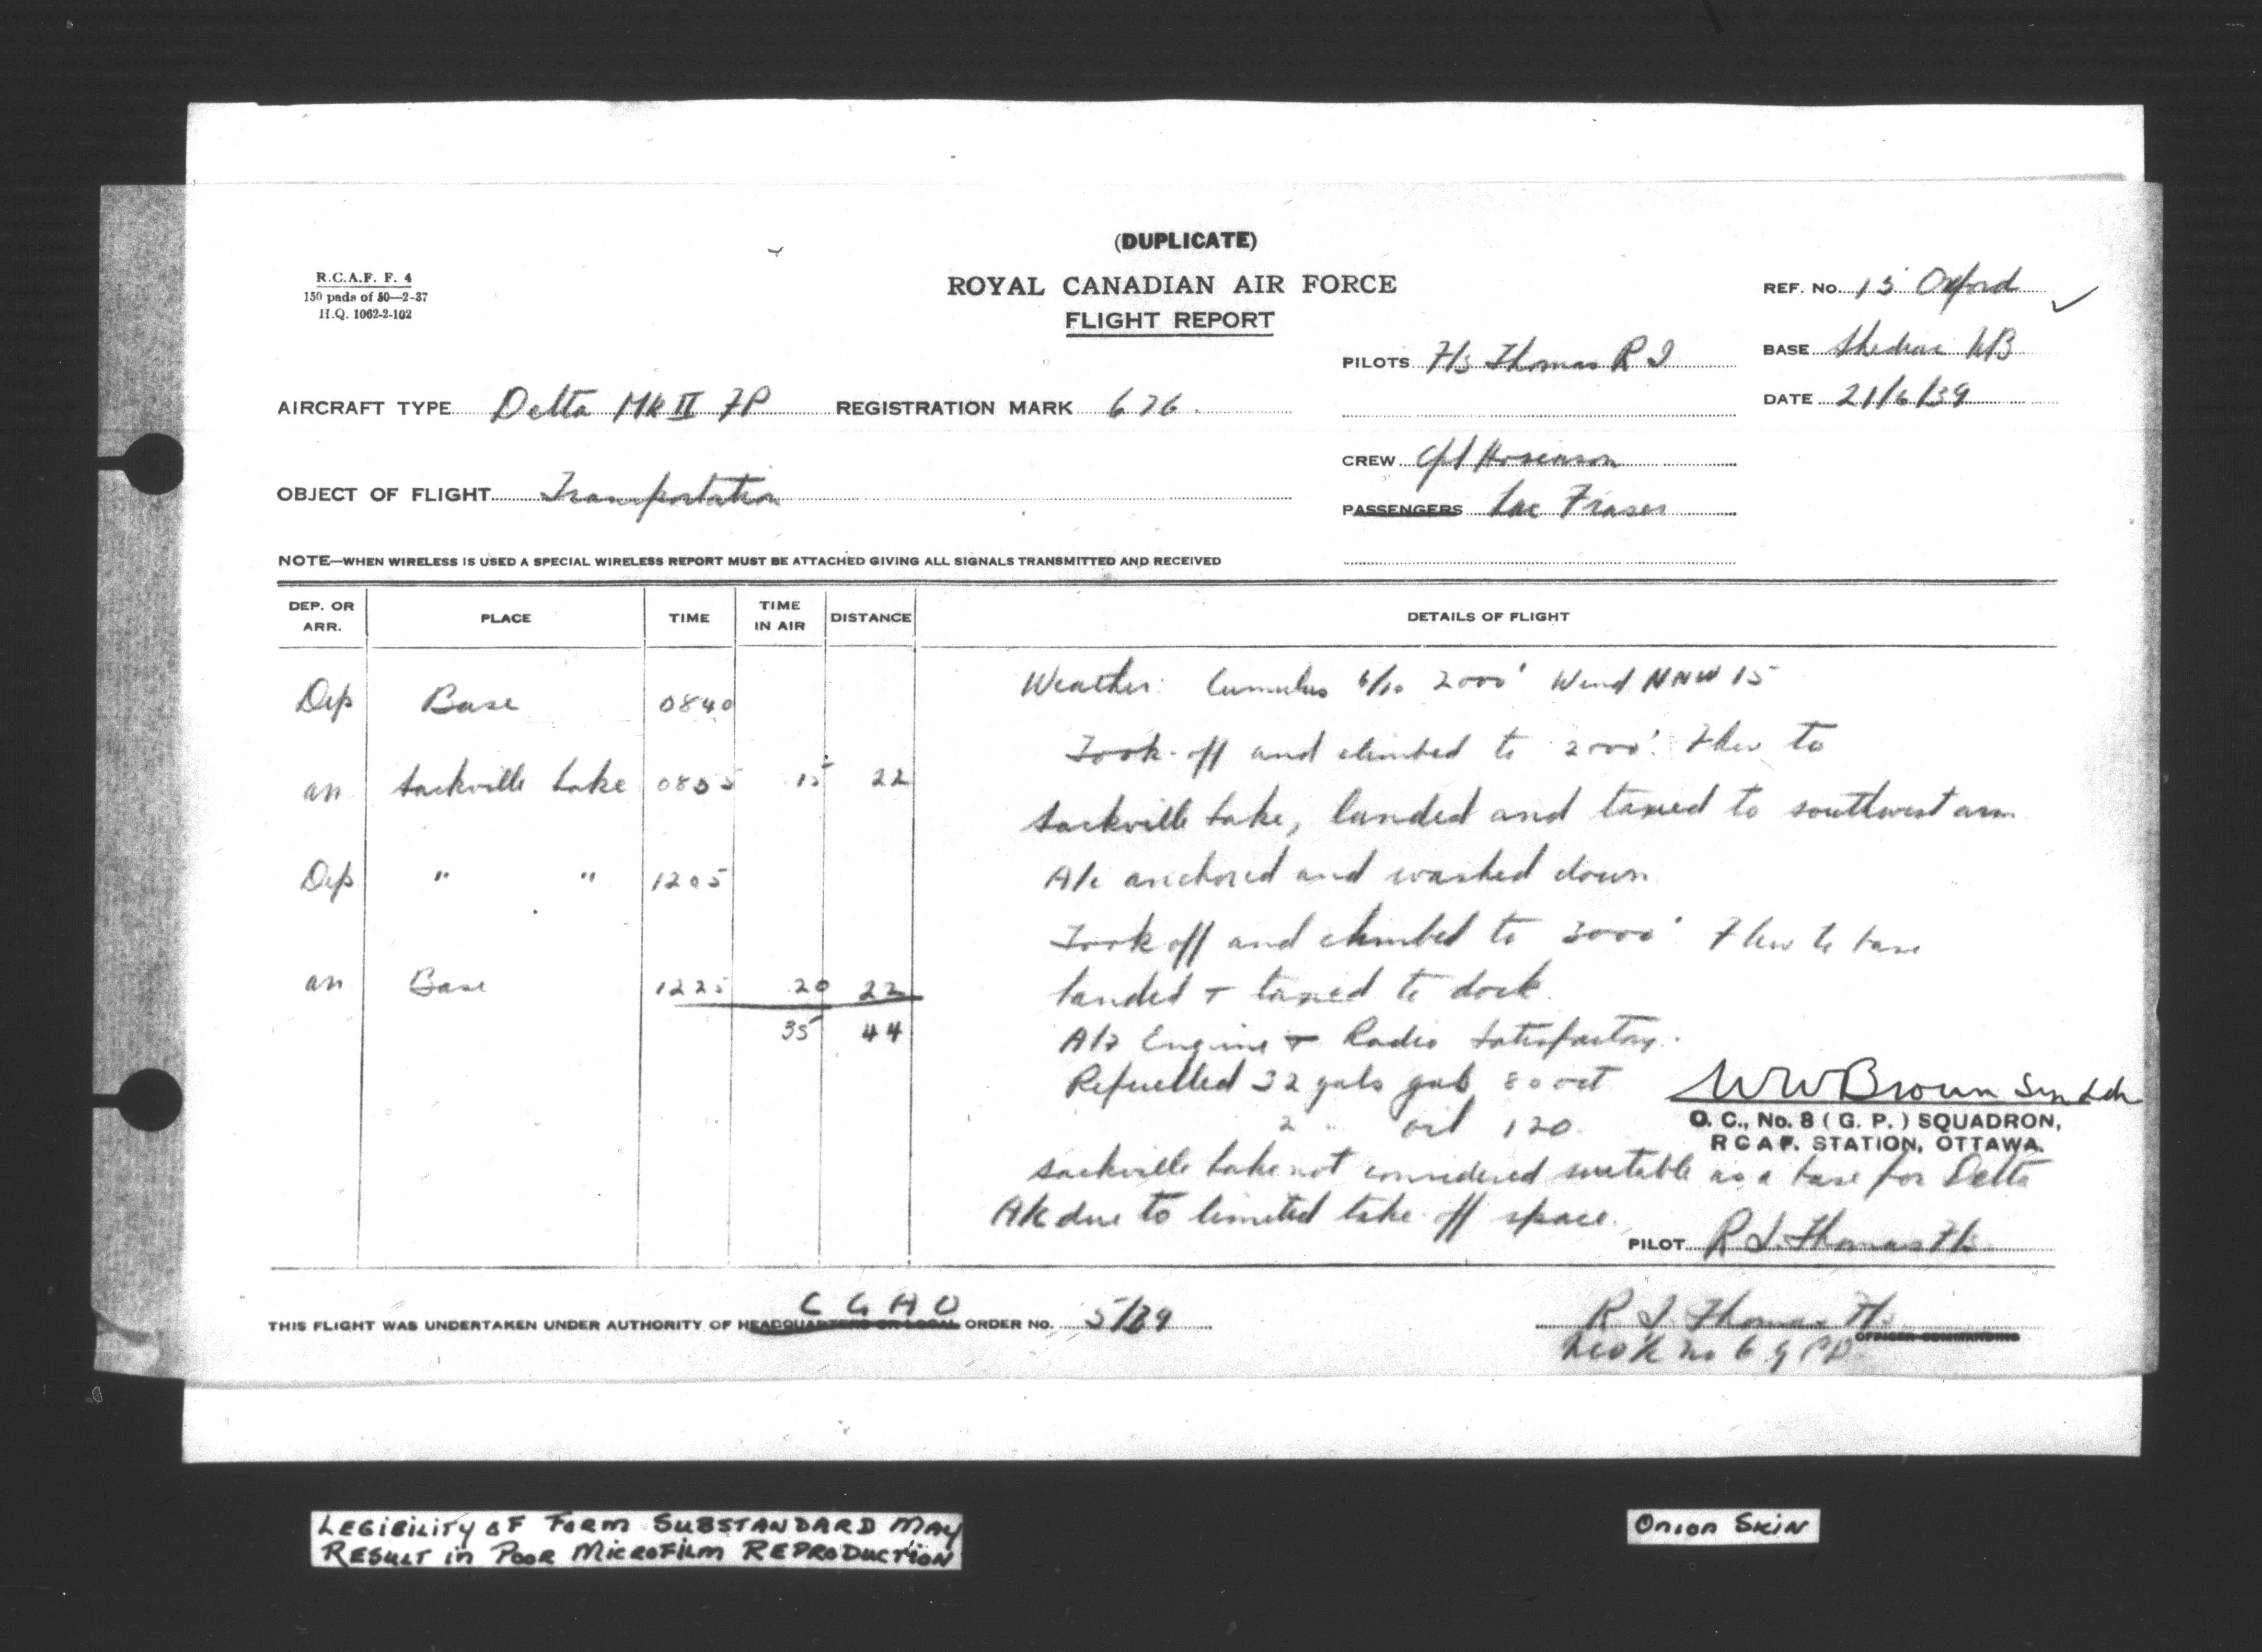 (DUPLICATE)
R.C.A.F. F. 4
150 pads of 50—2-37
H.Q. 1062-2-102
ROYAL CANADIAN AIR FORCE
FLIGHT REPORT
REF. No. 15 Oxford
BASE Shediac NB
DATE 21/6/39
PILOTS F/S Thomas R I
AIRCRAFT TYPE Delta Mk II FP REGISTRATION MARK 676.
CREW Cpl
OBJECT OF FLIGHT Transportation
PASSENGERS Lac Fraser
NOTE—WHEN WIRELESS IS USED A SPECIAL WIRELESS REPORT MUST BE ATTACHED GIVING ALL SIGNALS TRANSMITTED AND RECEIVED
DEP. OR ARR. PLACE TIME TIME IN AIR DISTANCE DETAILS OF FLIGHT
Dep Base 0840
arr Sackville Lake 0855 15 22
Dep " " 1205
arr Base 1225 20 22
35 44
Weather: Cumulus 6/10 2000' Wind NNW 15
Took-off and climbed to 2000'. Flew to
Sackville Lake, landed and taxied to southwest arm
A/c anchored and washed down
Took off and climbed to 3000' Flew to base
landed + taxied to dock.
A/F Engine + Radio Satisfactory.
Refuelled 32 gals gas 80 oct
2 " oil 120
WW Brown Sqn Ldr
O. C., No. 8 ( G. P. ) SQUADRON,
RCAF. STATION, OTTAWA.
Sackville Lake not considered suitable as a base for Delta
A/c due to limited take-off space.
PILOT R I Thomas F/S
THIS FLIGHT WAS UNDERTAKEN UNDER AUTHORITY OF HEADQUARTERS OR LOCAL C G A O ORDER NO. 5/39
R I Thomas F/S
OFFICER COMMANDING
NCO i/c No 6 G P D
LEGIBILITY OF FORM SUBSTANDARD MAY
RESULT in POOR MICROFILM REPRODUCTION
ONION SKIN